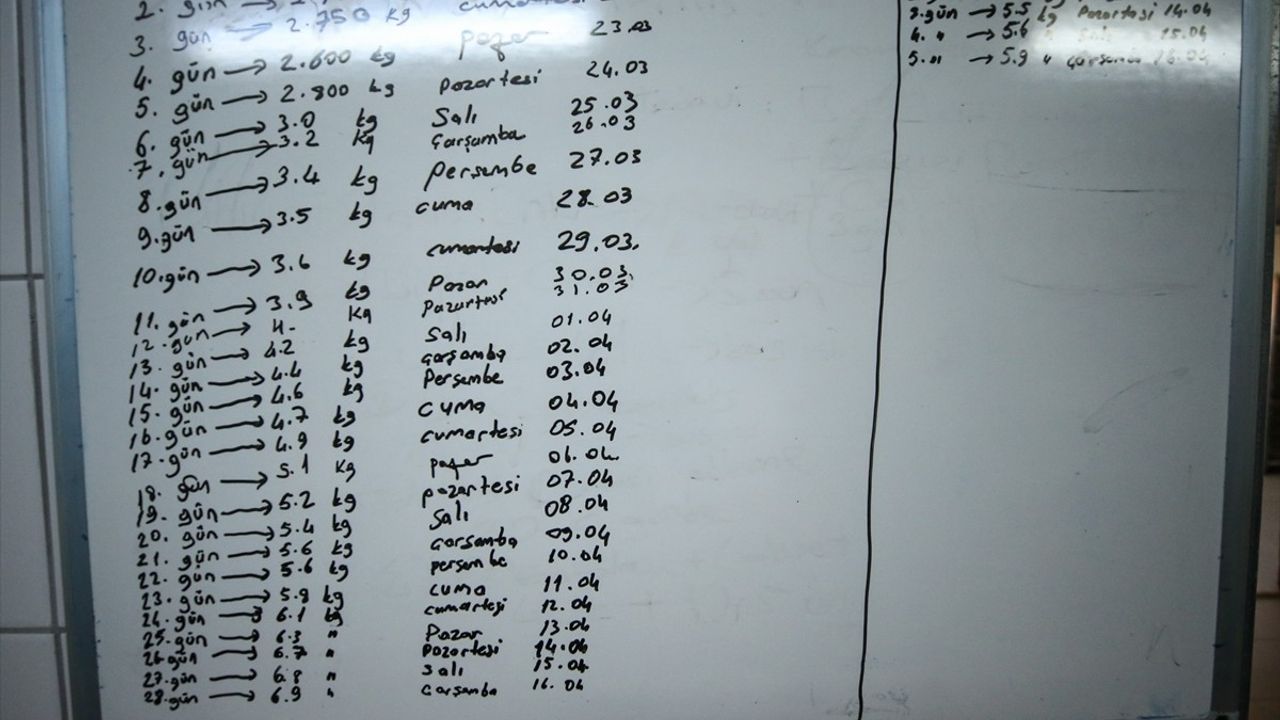 2. gün →
3. gün → 2.750 kg cumartesi
4. gün → 2.600 kg pazar 23.03
5. gün → 2.800 kg Pazartesi 24.03
6. gün → 3.0 kg Salı 25.03
7. gün → 3.2 kg Çarşamba 26.03
8. gün → 3.4 kg Perşembe 27.03
9. gün → 3.5 kg cuma 28.03
10. gün → 3.6 kg cumartesi 29.03.
11. gün → 3.9 kg Pazar 30.03.
12. gün → 4.- kg Pazartesi 31.03
13. gün → 4.2 kg Salı 01.04
14. gün → 4.4 kg Çarşamba 02.04
15. gün → 4.6 kg Perşembe 03.04
16. gün → 4.7 kg cuma 04.04
17. gün → 4.9 kg cumartesi 05.04
18. gün → 5.1 kg pazar 06.04
19. gün → 5.2 kg pazartesi 07.04
20. gün → 5.4 kg Salı 08.04
21. gün → 5.6 kg Çarşamba 09.04
22. gün → 5.6 kg perşembe 10.04
23. gün → 5.8 kg cuma 11.04
24. gün → 6.1 kg cumartesi 12.04
25. gün → 6.3 " Pazar 13.04
26. gün → 6.7 " Pazartesi 14.04
27. gün → 6.8 " Salı 15.04
28. gün → 6.9 " Çarşamba 16.04
3. gün → 5.5 kg Pazartesi 14.04
4. " → 5.6 " Salı 15.04
5. " → 5.9 " Çarşamba 16.04